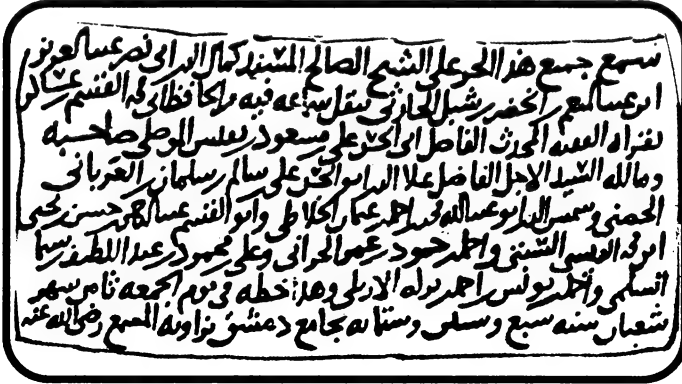 سمع جميع هذا الجزء على الشيخ الصالح المسند كمال الدين ابى نصر عبد العزيز
ابن عبد المنعم بن الخضر بن شبل الحارثى بنقل سماعه فيه من الحافظ ابى القسم بن عساكر
بقراه الفقيه المحدث الفاضل ابى الحسن على بن مسعود بن نفيس الموصلى صاحبه
ومالكه السيد الاجل الفاضل علا الدين ابو الحسن على بن سالم بن سلمان العربانى
الحصنى وشمس الدين ابو عبد الله محمد بن احمد بن عثمان الخلاطى وابو القسم عبد الرحمن بن حسن بن يحيى
القيسى السبتى واحمد بن حمود بن عمر الحرانى وعلى بن محمود بن عبد اللطيف بن سيما
السلمى واحمد بن يونس بن احمد بن بركه الاربلى وهذا خطه فى يوم الجمعه ثامن شهر
شعبان سنه سبع وستين وستمايه بجامع دمشق بزاويه المسمع رضى الله عنه